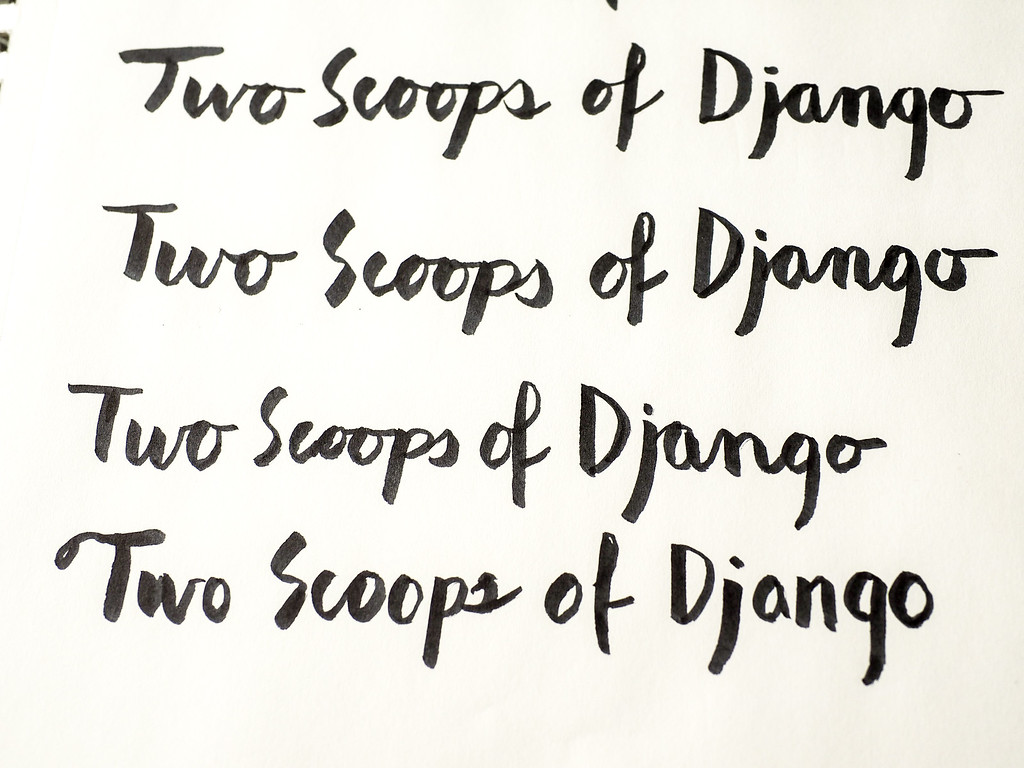 Two Scoops of Django
Two Scoops of Django
Two Scoops of Django
Two Scoops of Django